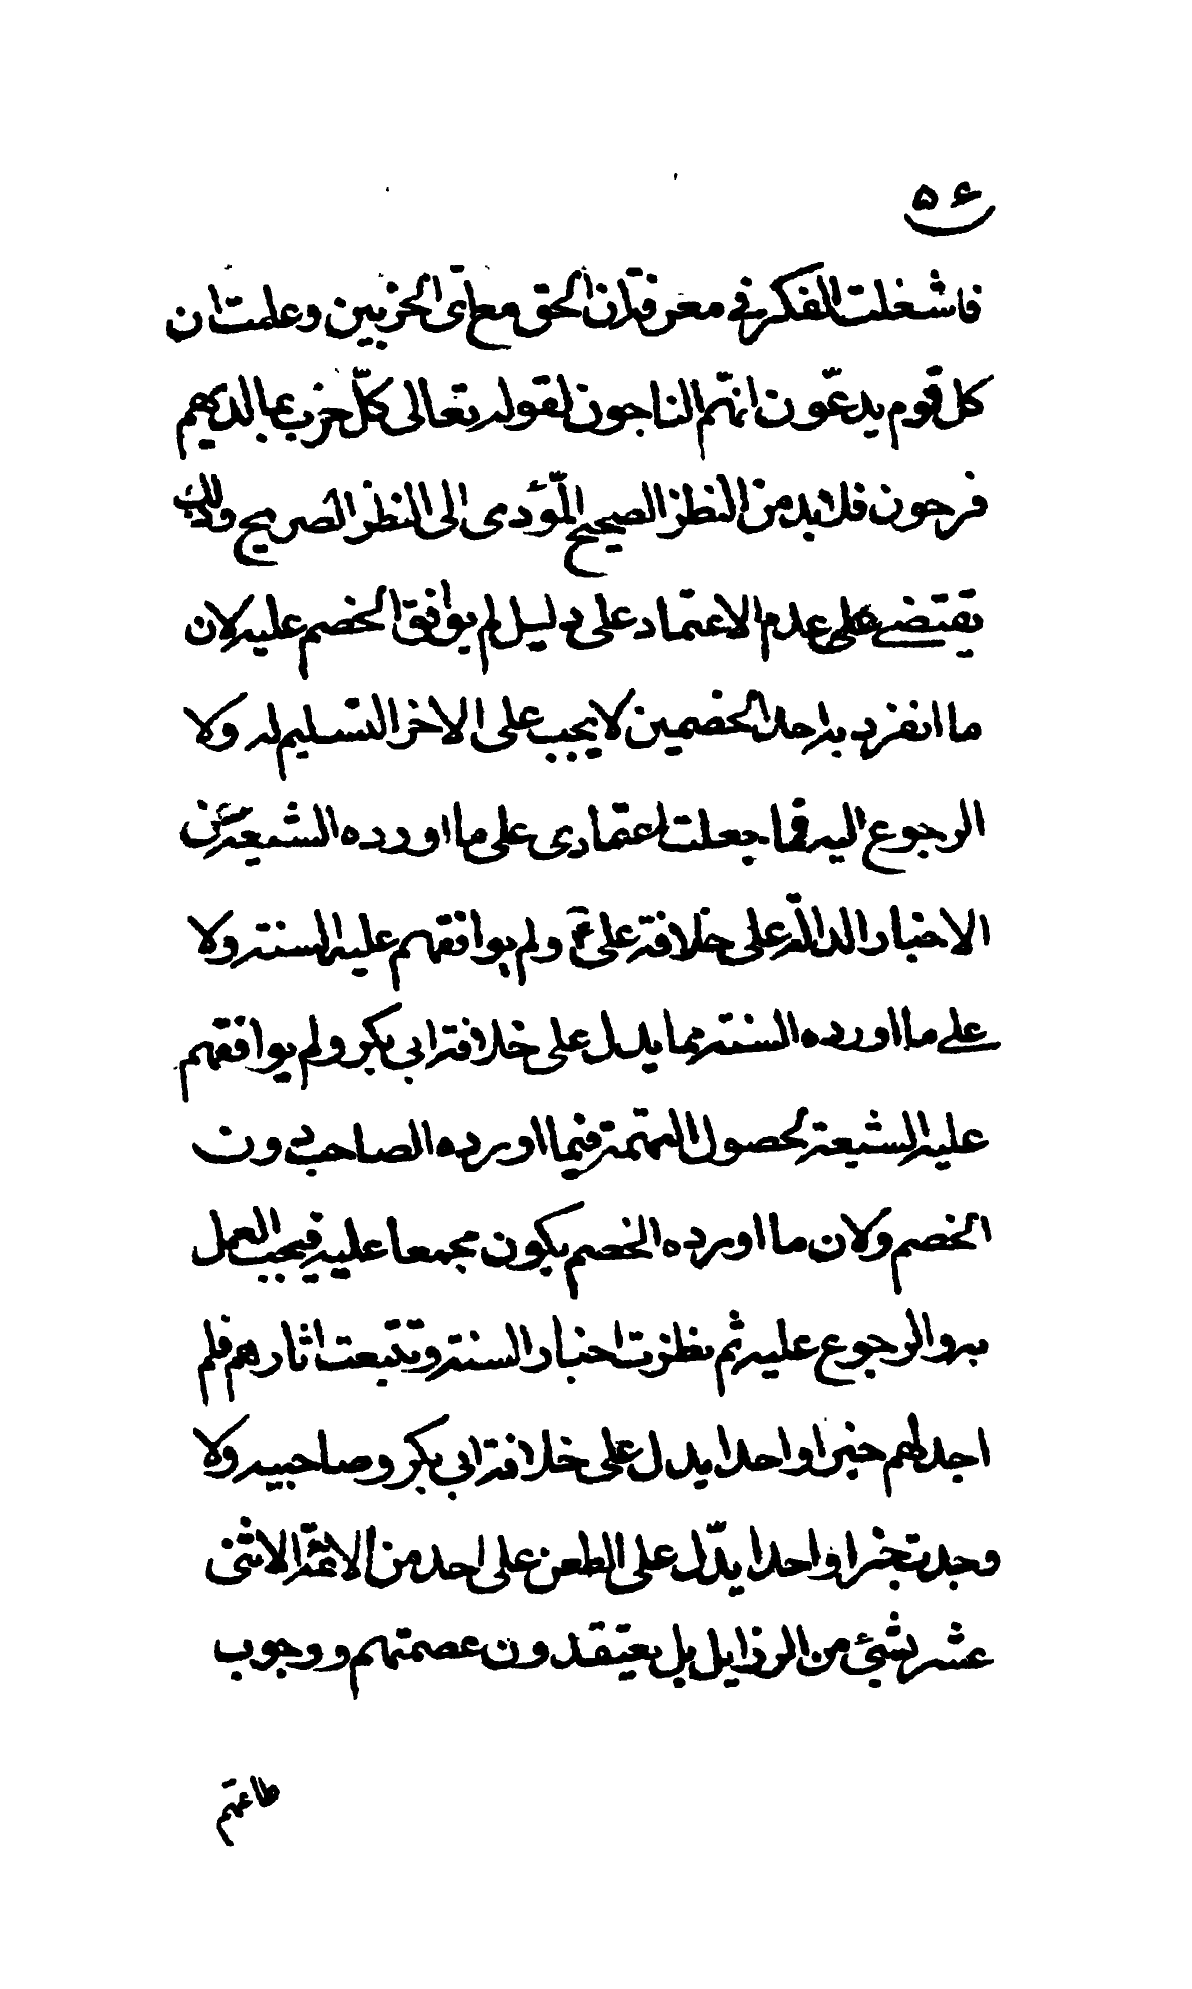 ۵۶
فاشغلت الفكر في معرفة ان الحق مع اىّ الحزبين وعلمت ان
كل قوم يدعّون انهّم الناجون لقوله تعالى كلّ حزب بما لديهم
فرحون فلابد من النظر الصحيح المؤدى الى النظر الصريح وذلك
يقتضى على عدم الاعتماد على دليل لم يوافق الخصم عليه لان
ما انفرد به احد الخصمين لا يجب على الاخر التسليم له ولا
الرجوع اليه فما جعلت اعتمادى على ما اورده الشيعة من
الاخبار الدالّة على خلافة على ع ولم يوافقهم عليه السنة ولا
على ما اورده السنة مما يدل على خلافة ابى بكر ولم يوافقهم
عليه الشيعة لحصول التهمة فيما اورده الصاحب دون
الخصم ولان ما اورده الخصم يكون مجمعا عليه فيجب العمل
به والرجوع عليه ثم نظرت اخبار السنة وتتبعت اثارهم فلم
اجد لهم خبرا واحدا يدل على خلافة ابى بكر وصاحبيه ولا
وجدت خبرا واحدا يدّل على الطعن على احد من الائمّة الاثنى
عشر بشئ من الرذايل بل يعتقدون عصمتهم ووجوب
طاعتهم